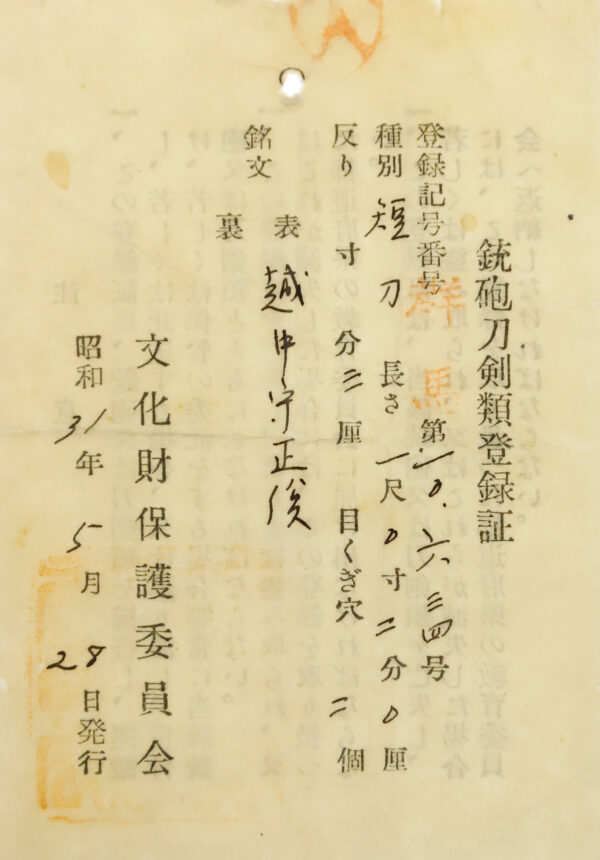 銃砲刀剣類登録証
登録記号番号 群馬 第一〇.六三四号
種別 短刀 長さ 一尺0寸二分0厘
反り 寸 分三厘 目くぎ穴 二個
銘文 表 越中守正俊
裏
文化財保護委員会
昭和31年5月28日発行